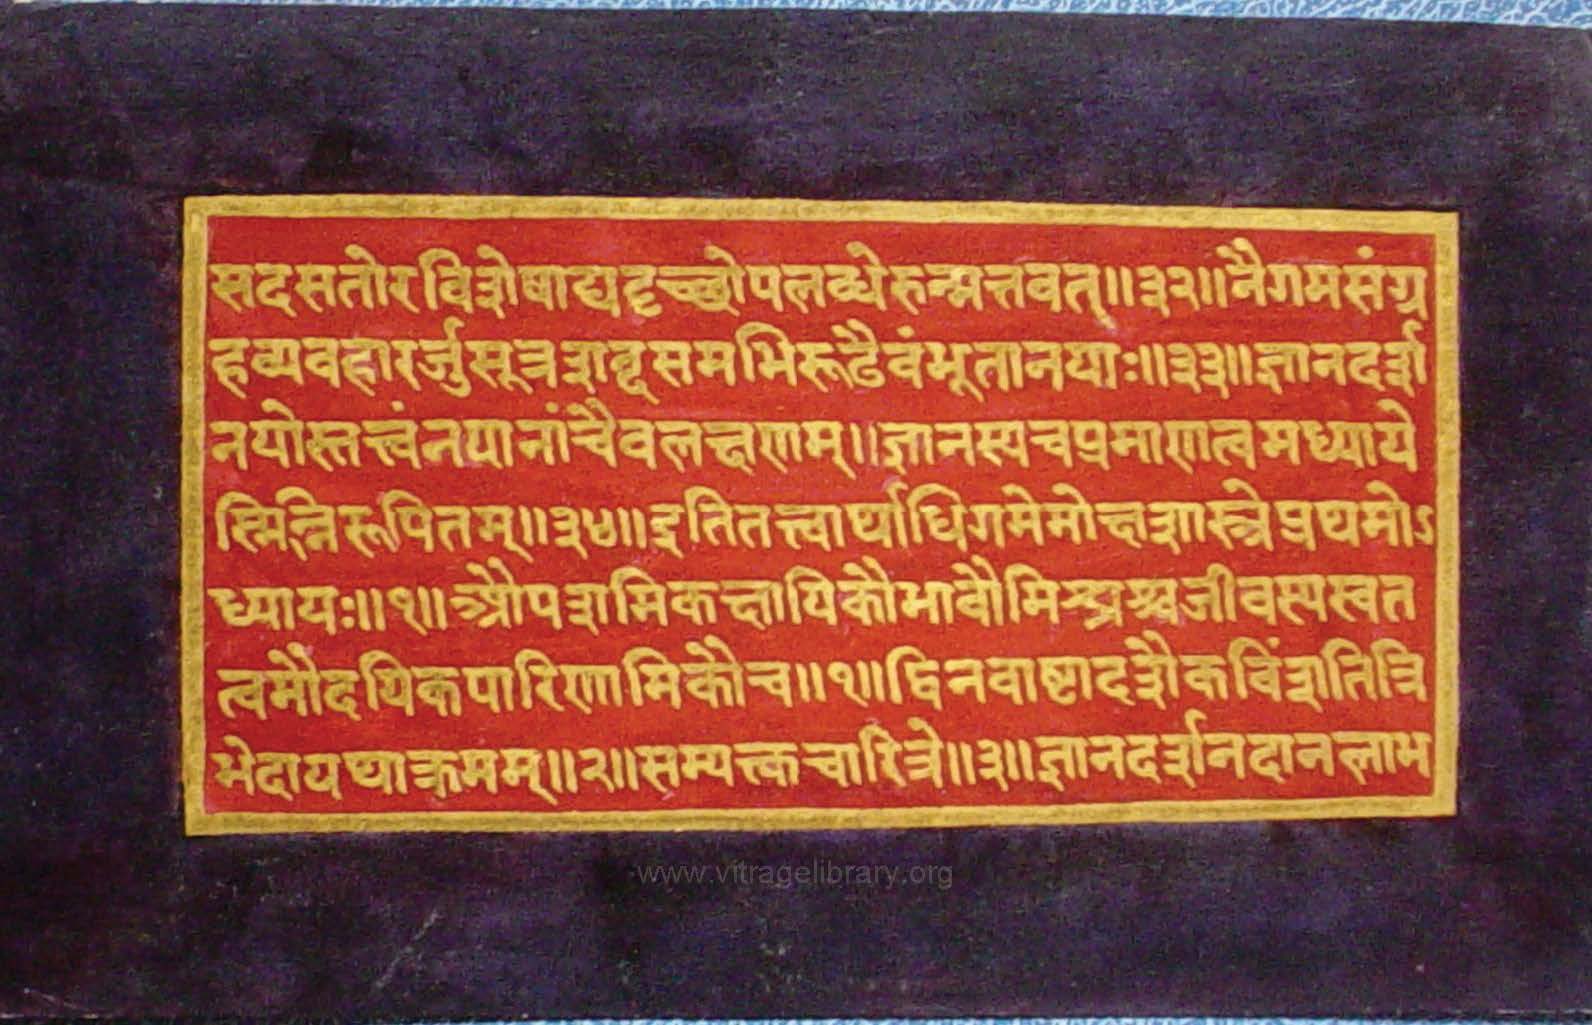 सदसतोरविशेषाद्यदृच्छोपलब्धेरुन्मत्तवत्॥३२॥नैगमसंग्र
हव्यवहारर्जुसूत्रशब्दसमभिरूढैवंभूतानयाः॥३३॥ज्ञानदर्श
नयोस्तत्त्वंनयानांचैवलक्षणम्॥ज्ञानस्यचप्रमाणत्वमध्याये
स्मिन्निरूपितम्॥३४॥इतितत्त्वार्थाधिगमेमोक्षशास्त्रेप्रथमोऽ
ध्यायः॥१॥औपशमिकक्षायिकौभावौमिश्रश्चजीवस्यस्वत
त्वमौदयिकपारिणामिकौच॥१॥द्विनवाष्टादशैकविंशतित्रि
भेदायथाक्रमम्॥२॥सम्यक्त्कचारित्रे॥३॥ज्ञानदर्शनदानलाभ
www.vitragelibrary.org